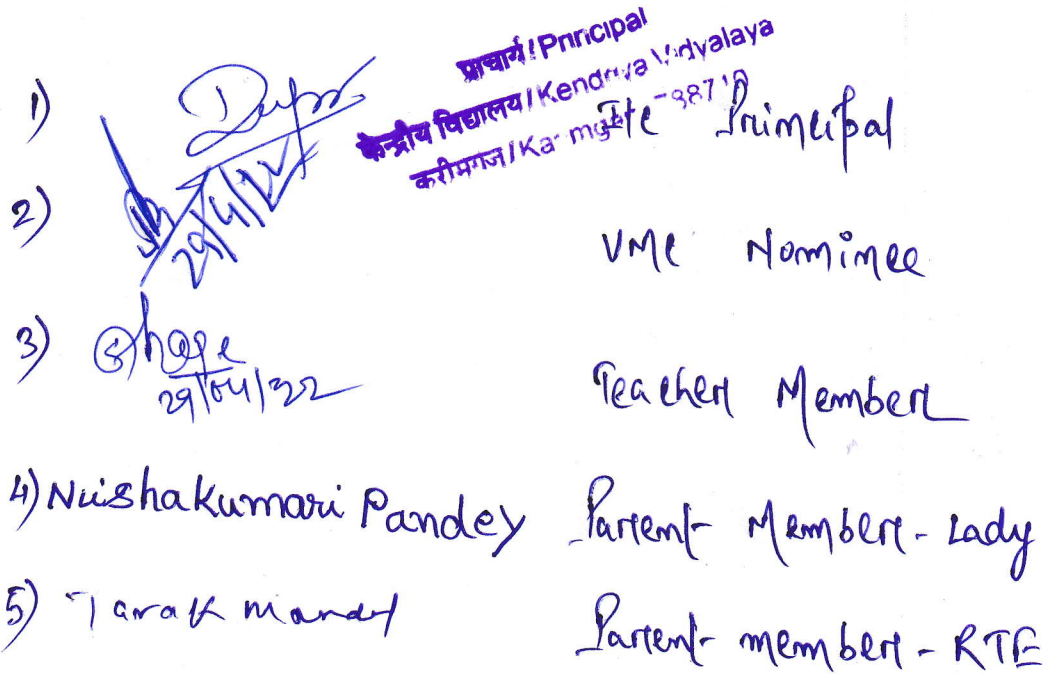 प्राचार्य / Principal
केन्द्रीय विद्यालय / Kendriya Vidyalaya
करीमगंज / Karimganj
1) I/c Principal
2) 29/4/22 VMC Nominee
3) 29/04/22 Teacher Member
4) Nishakumari Pandey Parent Member - Lady
5) Tarak Mandal Parent member - RTE